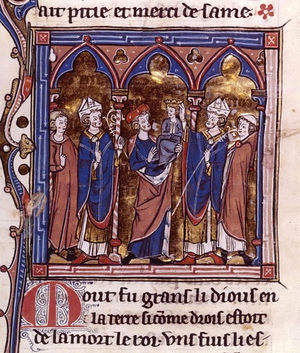 ait pitie et merci de same.
Mout fu grans li diols en
la terre si come d'uois estoit
de la mort le roi. Uns fius li es